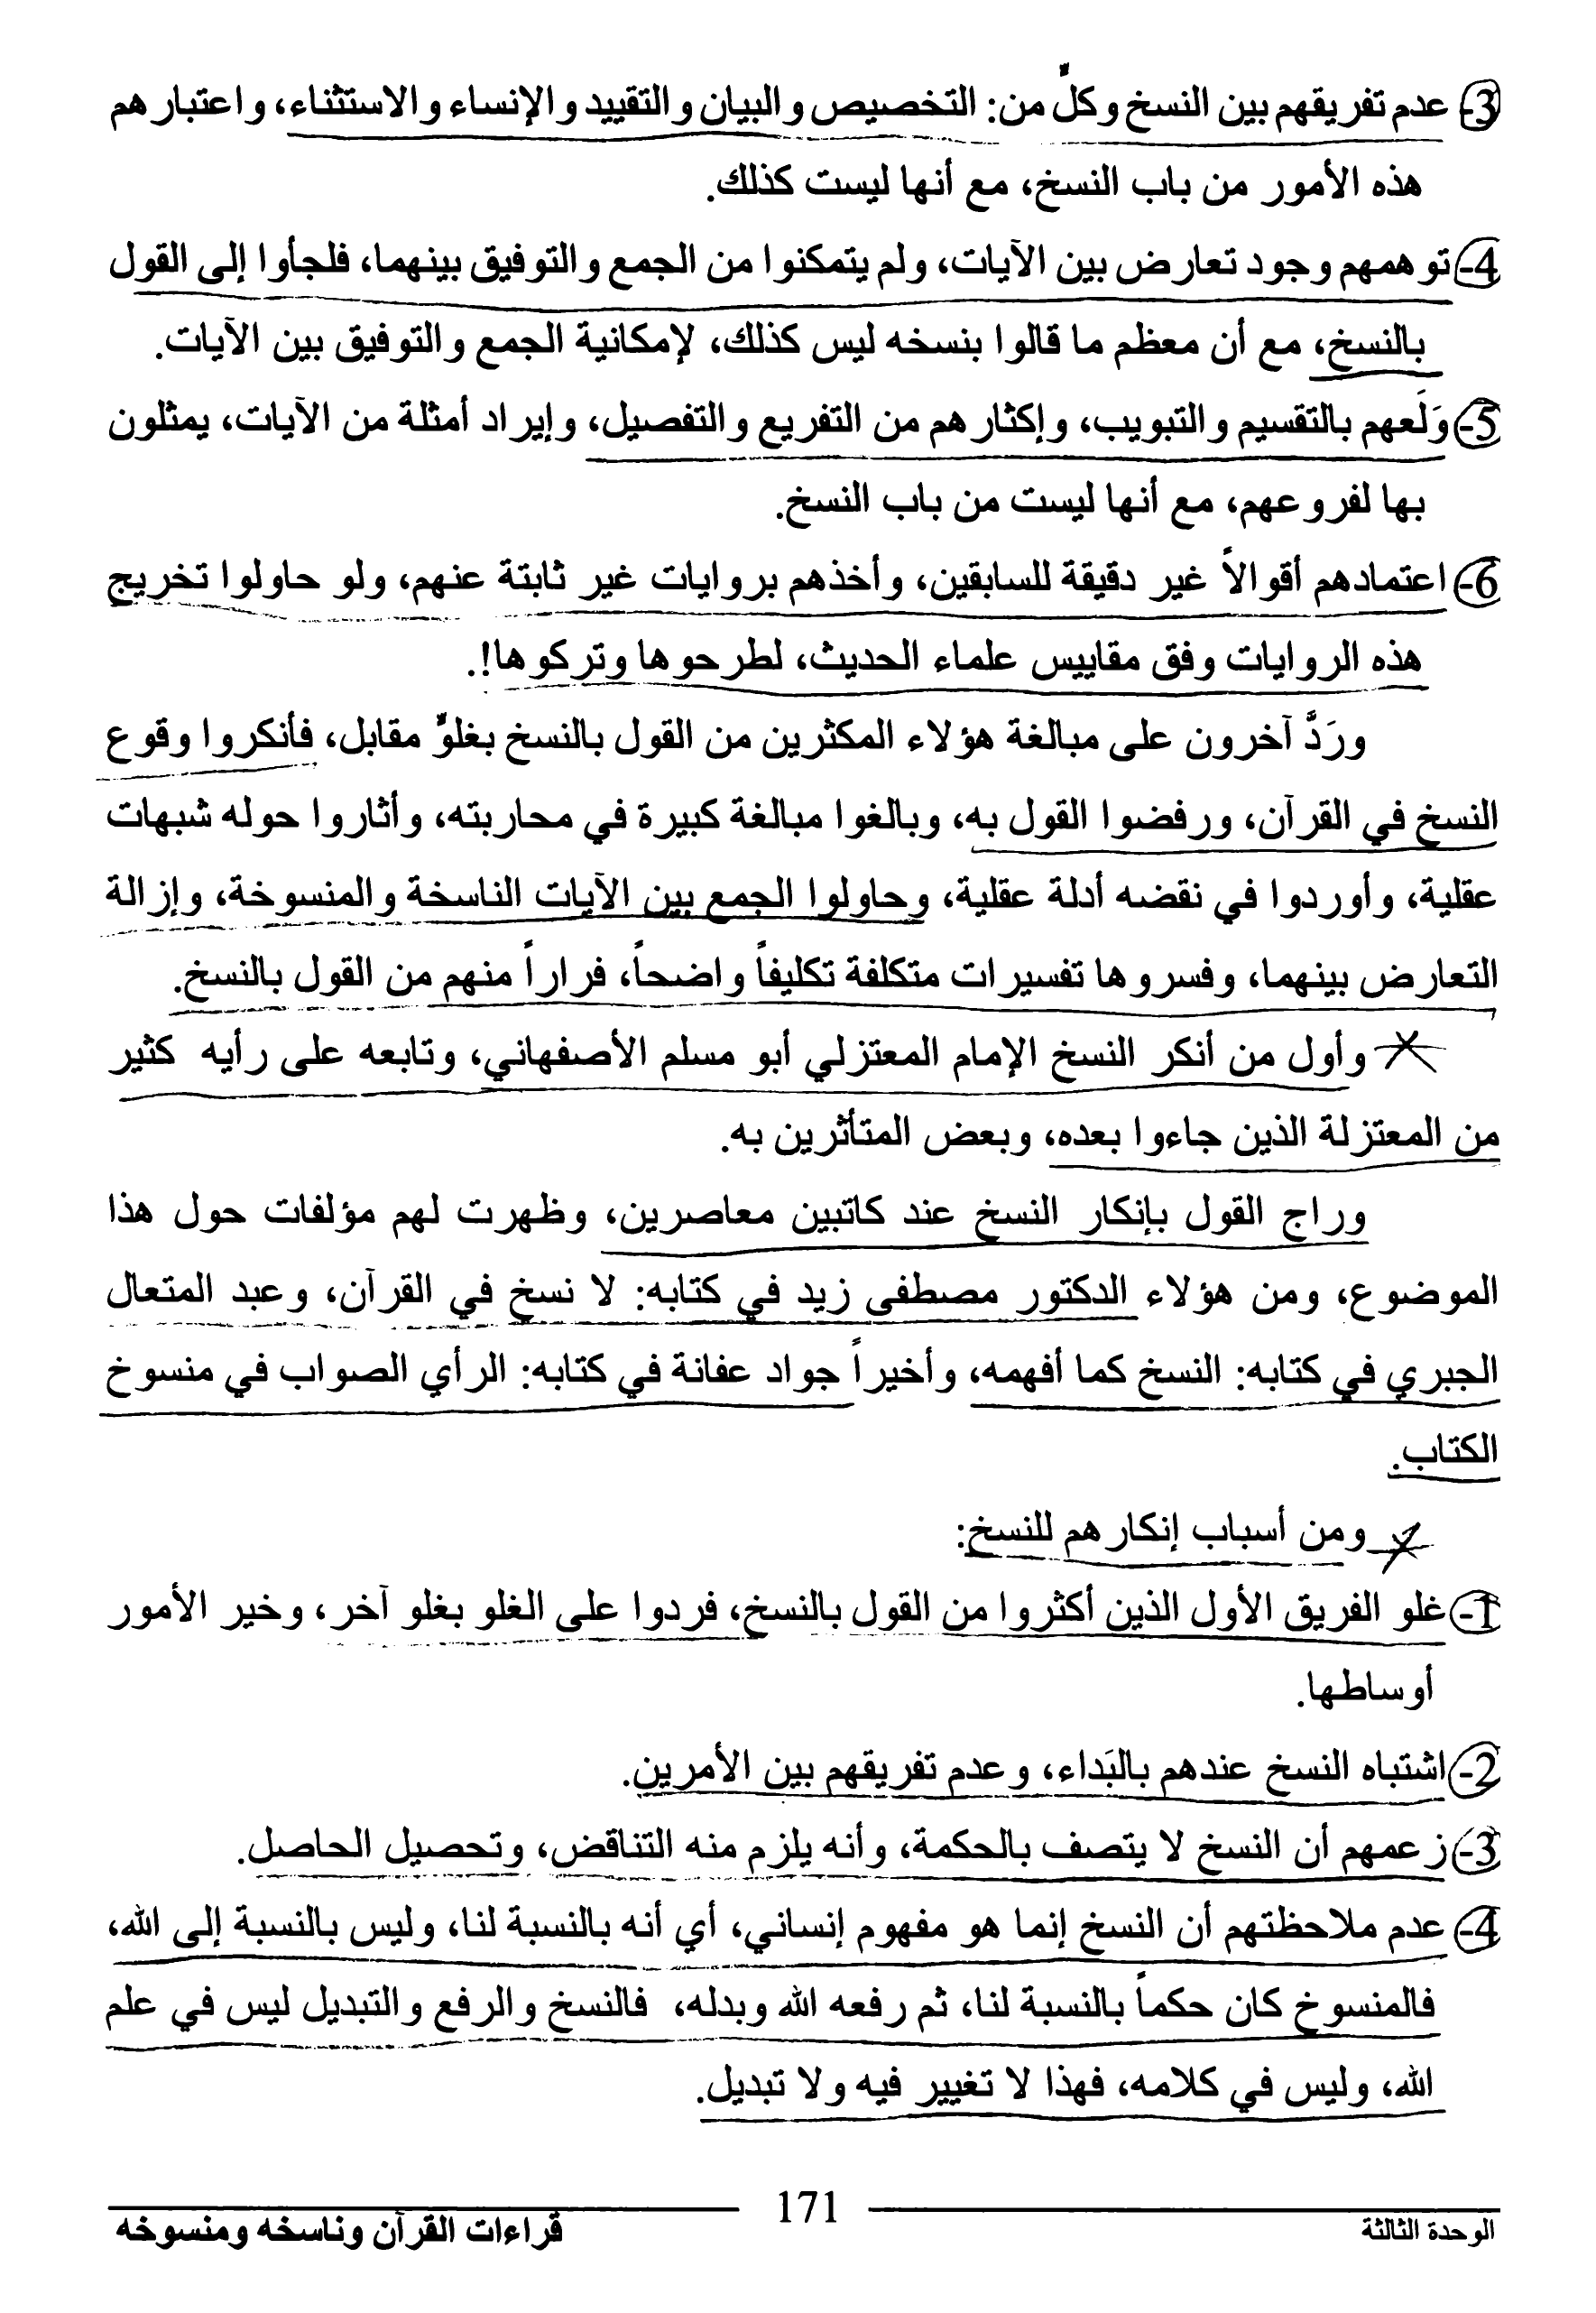 3- عدم تفريقهم بين النسخ وكلٍّ من: التخصيص والبيان والتقييد والإنساء والاستثناء، واعتبارهم
هذه الأمور من باب النسخ، مع أنها ليست كذلك.
4- توهمهم وجود تعارض بين الآيات، ولم يتمكنوا من الجمع والتوفيق بينهما، فلجأوا إلى القول
بالنسخ، مع أن معظم ما قالوا بنسخه ليس كذلك، لإمكانية الجمع والتوفيق بين الآيات.
5- وَلَعهم بالتقسيم والتبويب، وإكثارهم من التفريع والتفصيل، وإيراد أمثلة من الآيات، يمثلون
بها لفروعهم، مع أنها ليست من باب النسخ.
6- اعتمادهم أقوالاً غير دقيقة للسابقين، وأخذهم بروايات غير ثابتة عنهم، ولو حاولوا تخريج
هذه الروايات وفق مقاييس علماء الحديث، لطرحوها وتركوها!.
ورَدَّ آخرون على مبالغة هؤلاء المكثرين من القول بالنسخ بغلوٍّ مقابل، فأنكروا وقوع
النسخ في القرآن، ورفضوا القول به، وبالغوا مبالغة كبيرة في محاربته، وأثاروا حوله شبهات
عقلية، وأوردوا في نقضه أدلة عقلية، وحاولوا الجمع بين الآيات الناسخة والمنسوخة، وإزالة
التعارض بينهما، وفسروها تفسيرات متكلفة تكليفاً واضحاً، فراراً منهم من القول بالنسخ.
وأول من أنكر النسخ الإمام المعتزلي أبو مسلم الأصفهاني، وتابعه على رأيه كثير
من المعتزلة الذين جاءوا بعده، وبعض المتأثرين به.
وراج القول بإنكار النسخ عند كاتبين معاصرين، وظهرت لهم مؤلفات حول هذا
الموضوع، ومن هؤلاء الدكتور مصطفى زيد في كتابه: لا نسخ في القرآن، وعبد المتعال
الجبري في كتابه: النسخ كما أفهمه، وأخيراً جواد عفانة في كتابه: الرأي الصواب في منسوخ
الكتاب.
ومن أسباب إنكارهم للنسخ:
1- غلو الفريق الأول الذين أكثروا من القول بالنسخ، فردوا على الغلو بغلو آخر، وخير الأمور
أوساطها.
2- اشتباه النسخ عندهم بالبَداء، وعدم تفريقهم بين الأمرين.
3- زعمهم أن النسخ لا يتصف بالحكمة، وأنه يلزم منه التناقض، وتحصيل الحاصل.
4- عدم ملاحظتهم أن النسخ إنما هو مفهوم إنساني، أي أنه بالنسبة لنا، وليس بالنسبة إلى الله،
فالمنسوخ كان حكماً بالنسبة لنا، ثم رفعه الله وبدله، فالنسخ والرفع والتبديل ليس في علم
الله، وليس في كلامه، فهذا لا تغيير فيه ولا تبديل.
الوحدة الثالثة 171 قراءات القرآن وناسخه ومنسوخه